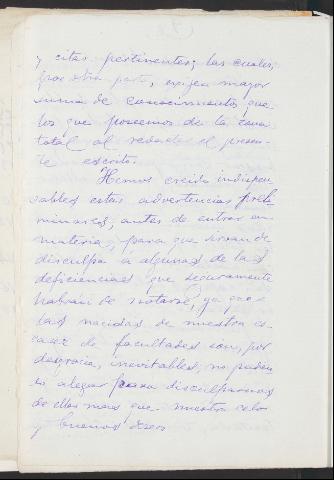 y citas pertinentes; las cuales,
por otra parte, exijen mayor
suma de conocimientos que
los que poseemos de la
total al redactar el presen-
te escrito.
Hemos creido indispen
sables estas advertencias preli-
minares, antes de entrar en
materia, para que sirvan de
disculpa á algunas de las
deficiencias que seguramente
habran de notarse, ya que
las nacidas de nuestra es-
casez de facultades son, por
desgracia, inevitables, no pudien
do alegar para disculparnos
de ellas mas que nuestro celo
y buenos deseos